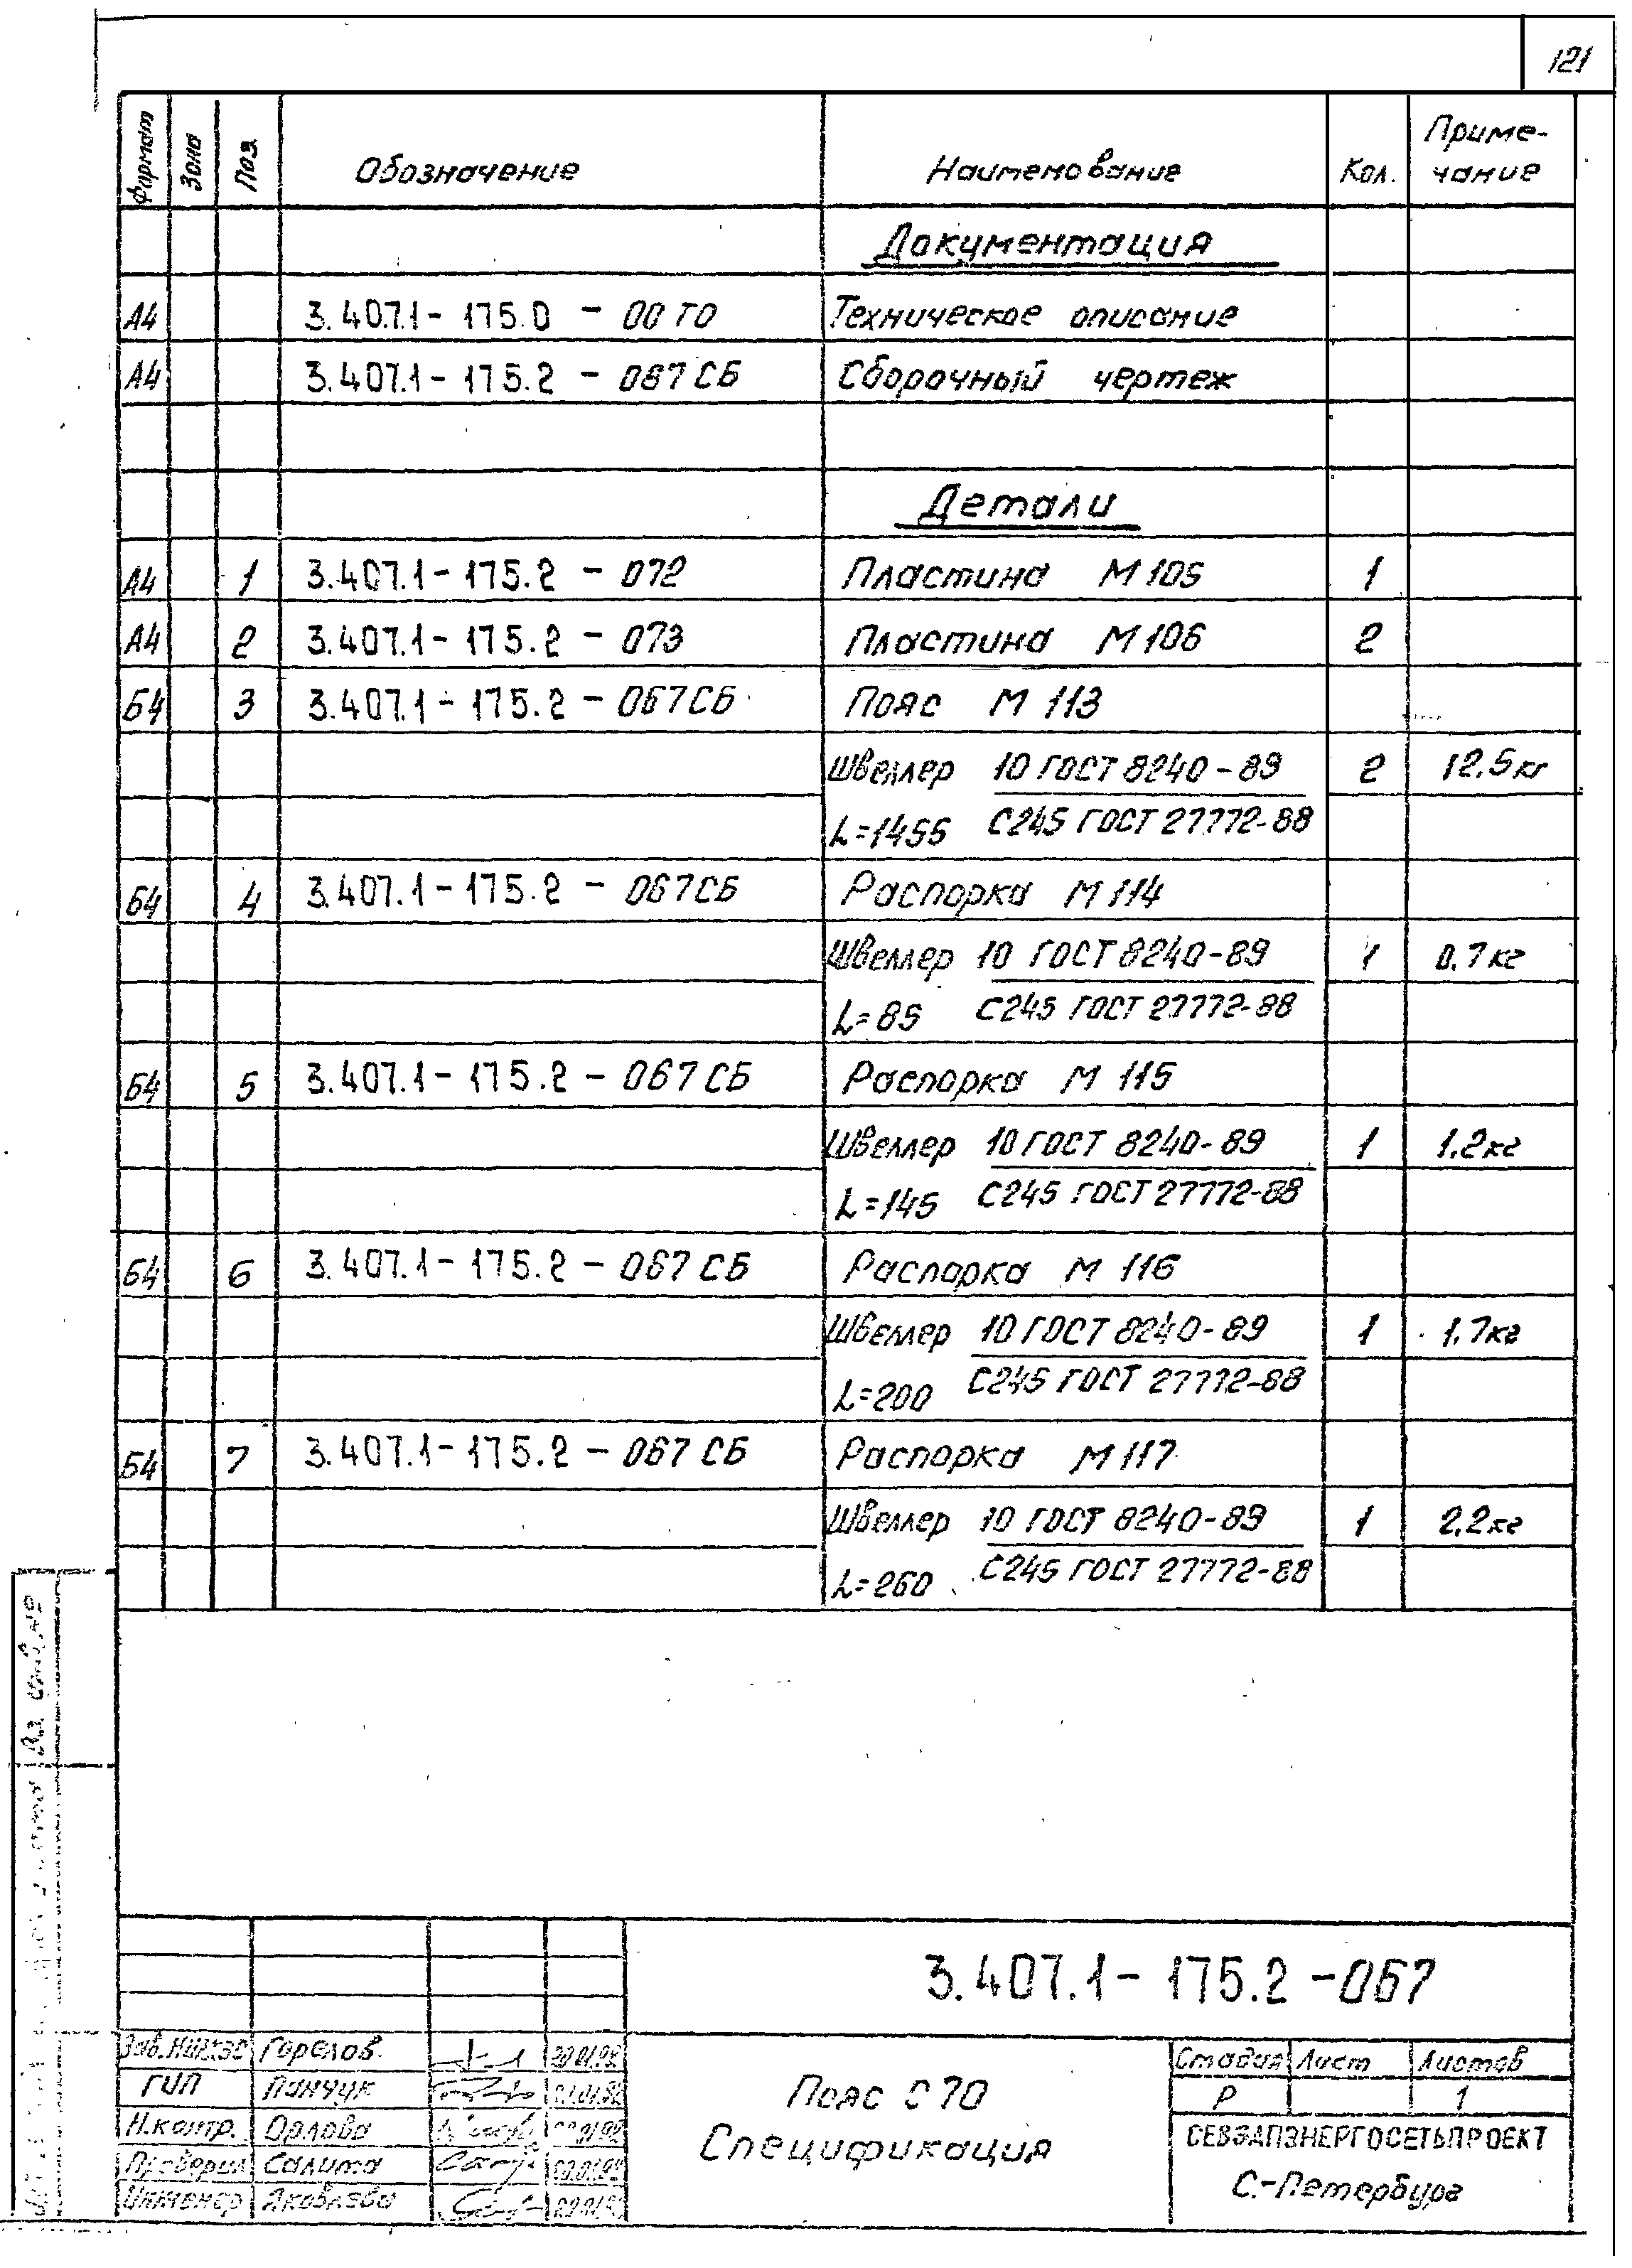 121
Формат Зона Поз Обозначение Наименование Кол. Приме-
чание
Документация
А4 3.407.1 - 175.0 - 00 ТО Техническое описание
А4 3.407.1 - 175.2 - 067 СБ Сборочный чертеж
Детали
А4 1 3.407.1 - 175.2 - 072 Пластина М 105 1
А4 2 3.407.1 - 175.2 - 073 Пластина М 106 2
Б4 3 3.407.1 - 175.2 - 067 СБ Пояс М 113
Швеллер 10 ГОСТ 8240-89 2 12.5 кг
L=1455 С245 ГОСТ 27772-88
Б4 4 3.407.1 - 175.2 - 067 СБ Распорка М 114
Швеллер 10 ГОСТ 8240-89 1 0.7 кг
L=85 С245 ГОСТ 27772-88
Б4 5 3.407.1 - 175.2 - 067 СБ Распорка М 115
Швеллер 10 ГОСТ 8240-89 1 1.2 кг
L=145 С245 ГОСТ 27772-88
Б4 6 3.407.1 - 175.2 - 067 СБ Распорка М 116
Швеллер 10 ГОСТ 8240-89 1 1.7 кг
L=200 С245 ГОСТ 27772-88
Б4 7 3.407.1 - 175.2 - 067 СБ Распорка М 117
Швеллер 10 ГОСТ 8240-89 1 2.2 кг
L=260 С245 ГОСТ 27772-88
Вз. инв. №
3.407.1 - 175.2 - 067
Горелов
ГИП Панчук
Н.контр. Орлова
Проверил Салита
Инженер Яковлева
Пояс С 70
Спецификация
Стадия Лист Листов
Р 1
СЕВЗАПЭНЕРГОСЕТЬПРОЕКТ
С.-Петербург